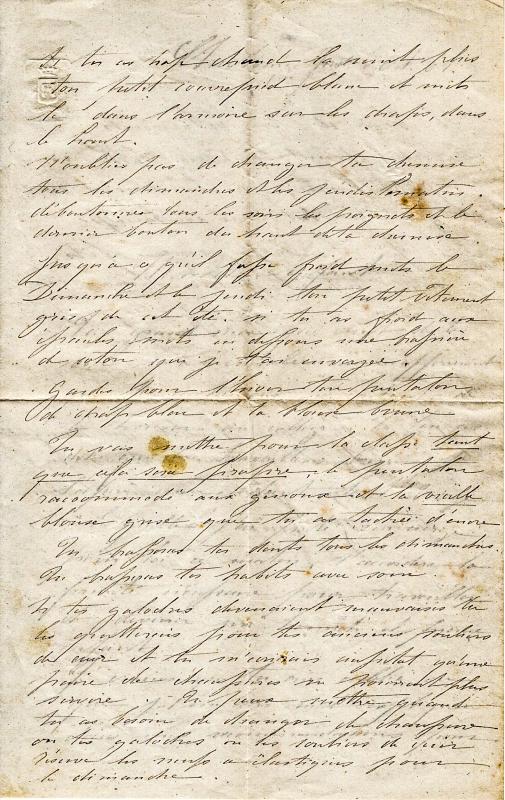 Si tu as trop chaud la nuit plies
ton petit couvrepied blanc et mets
le dans l'armoire sur les draps, dans
le haut.
N'oublies pas de changer ta chemise
tous les dimandres et les jeudis
déboutonnes tous les soirs les poignets et le
dernier bouton du haut de la chemise
Jusqu'à ce qu'il fasse froid mets le
Dimanche et le jeudi ton petit vêtement
gris de cet été. si tu as froid aux
épaules, mets en dessous une
de coton que je t'ai envoyée.
Gardes pour l'hiver ton pantalon
de drap bleu et la blouse brune
Tu vas mettre pour la classe tant
que cela sera propre, le pantalon
raccommodé aux genoux et la vieille
blouse grise que tu as tachée d'encre
Tu brosseras tes dents tous les dimandres.
Tu brosseras tes habits avec soin.
Si tes galoches devenaient mauvaises tu
les quitterais pour tes anciens souliers
de cuir et tu m'écrirais aussitôt qu'une
paire de chaussures ne pourrait plus
servir. Tu peux mettre quand
tu as besoin de changer de chaussure
ou tes galoches ou les souliers de cuir
réserve les neufs à élastiques pour
le dimandre.